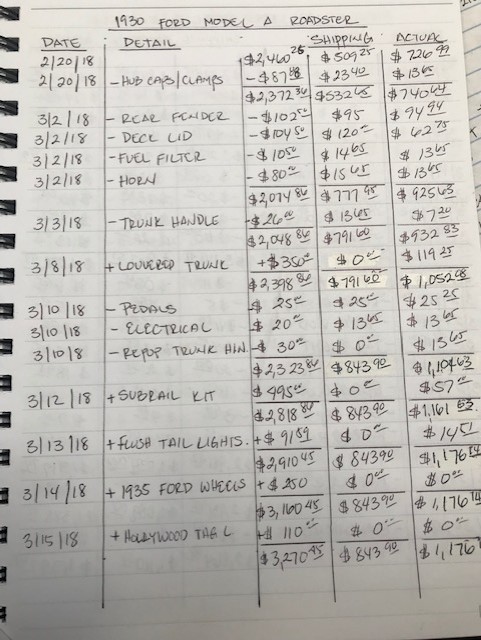 1930 FORD MODEL A ROADSTER
DATE DETAIL SHIPPING ACTUAL
2/20/18 $2,460 25 $509 25 $726 99
2/20/18 - HUB CAPS/CLAMPS - $87 88 $23 40 $13 65
$2,372 36 $532 65 $740 64
3/2/18 - REAR FENDER - $102 50 $95 $94 94
3/2/18 - DECK LID - $104 50 $120 00 $62 75
3/2/18 - FUEL FILTER - $10 50 $14 65 $13 65
3/2/18 - HORN - $80 00 $15 65 $13 65
$2,074 86 $777 95 $925 63
3/3/18 - TRUNK HANDLE - $26 00 $13 65 $7 20
$2,048 86 $791 60 $932 83
3/8/18 + LOUVERED TRUNK + $350 00 $0 00 $119 25
$2,398 86 $791 60 $1,052 08
3/10/18 - PEDALS $25 00 $25 00 $25 25
3/10/18 - ELECTRICAL $20 00 $13 65 $13 65
3/10/18 - REPOP TRUNK HIN. $30 00 $0 00 $13 65
$2,323 86 $843 90 $1,104 63
3/12/18 + SUBRAIL KIT $495 00 $0 00 $57 00
$2,818 86 $843 90 $1,161 63
3/13/18 + FLUSH TAIL LIGHTS. + $91 59 $0 00 $14 51
$2,910 45 $843 90 $1,176 14
3/14/18 + 1935 FORD WHEELS + $250 $0 00 $0 00
$3,160 45 $843 90 $1,176 14
3/15/18 + HOLLYWOOD TAG L + $110 00 $0 00 $0 00
$3,270 45 $843 90 $1,176